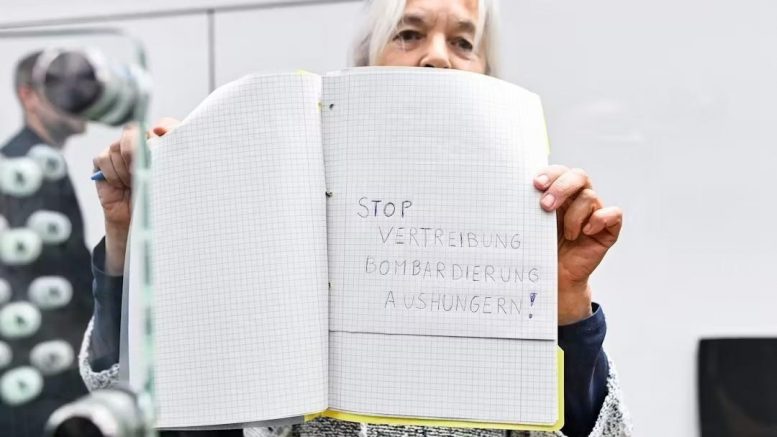 STOP
VERTREIBUNG
BOMBARDIERUNG
AUSHUNGERN!